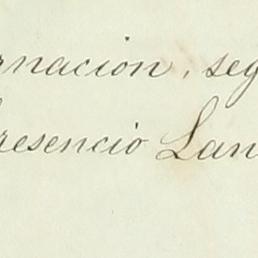 rnacion, seg
resencio Lan